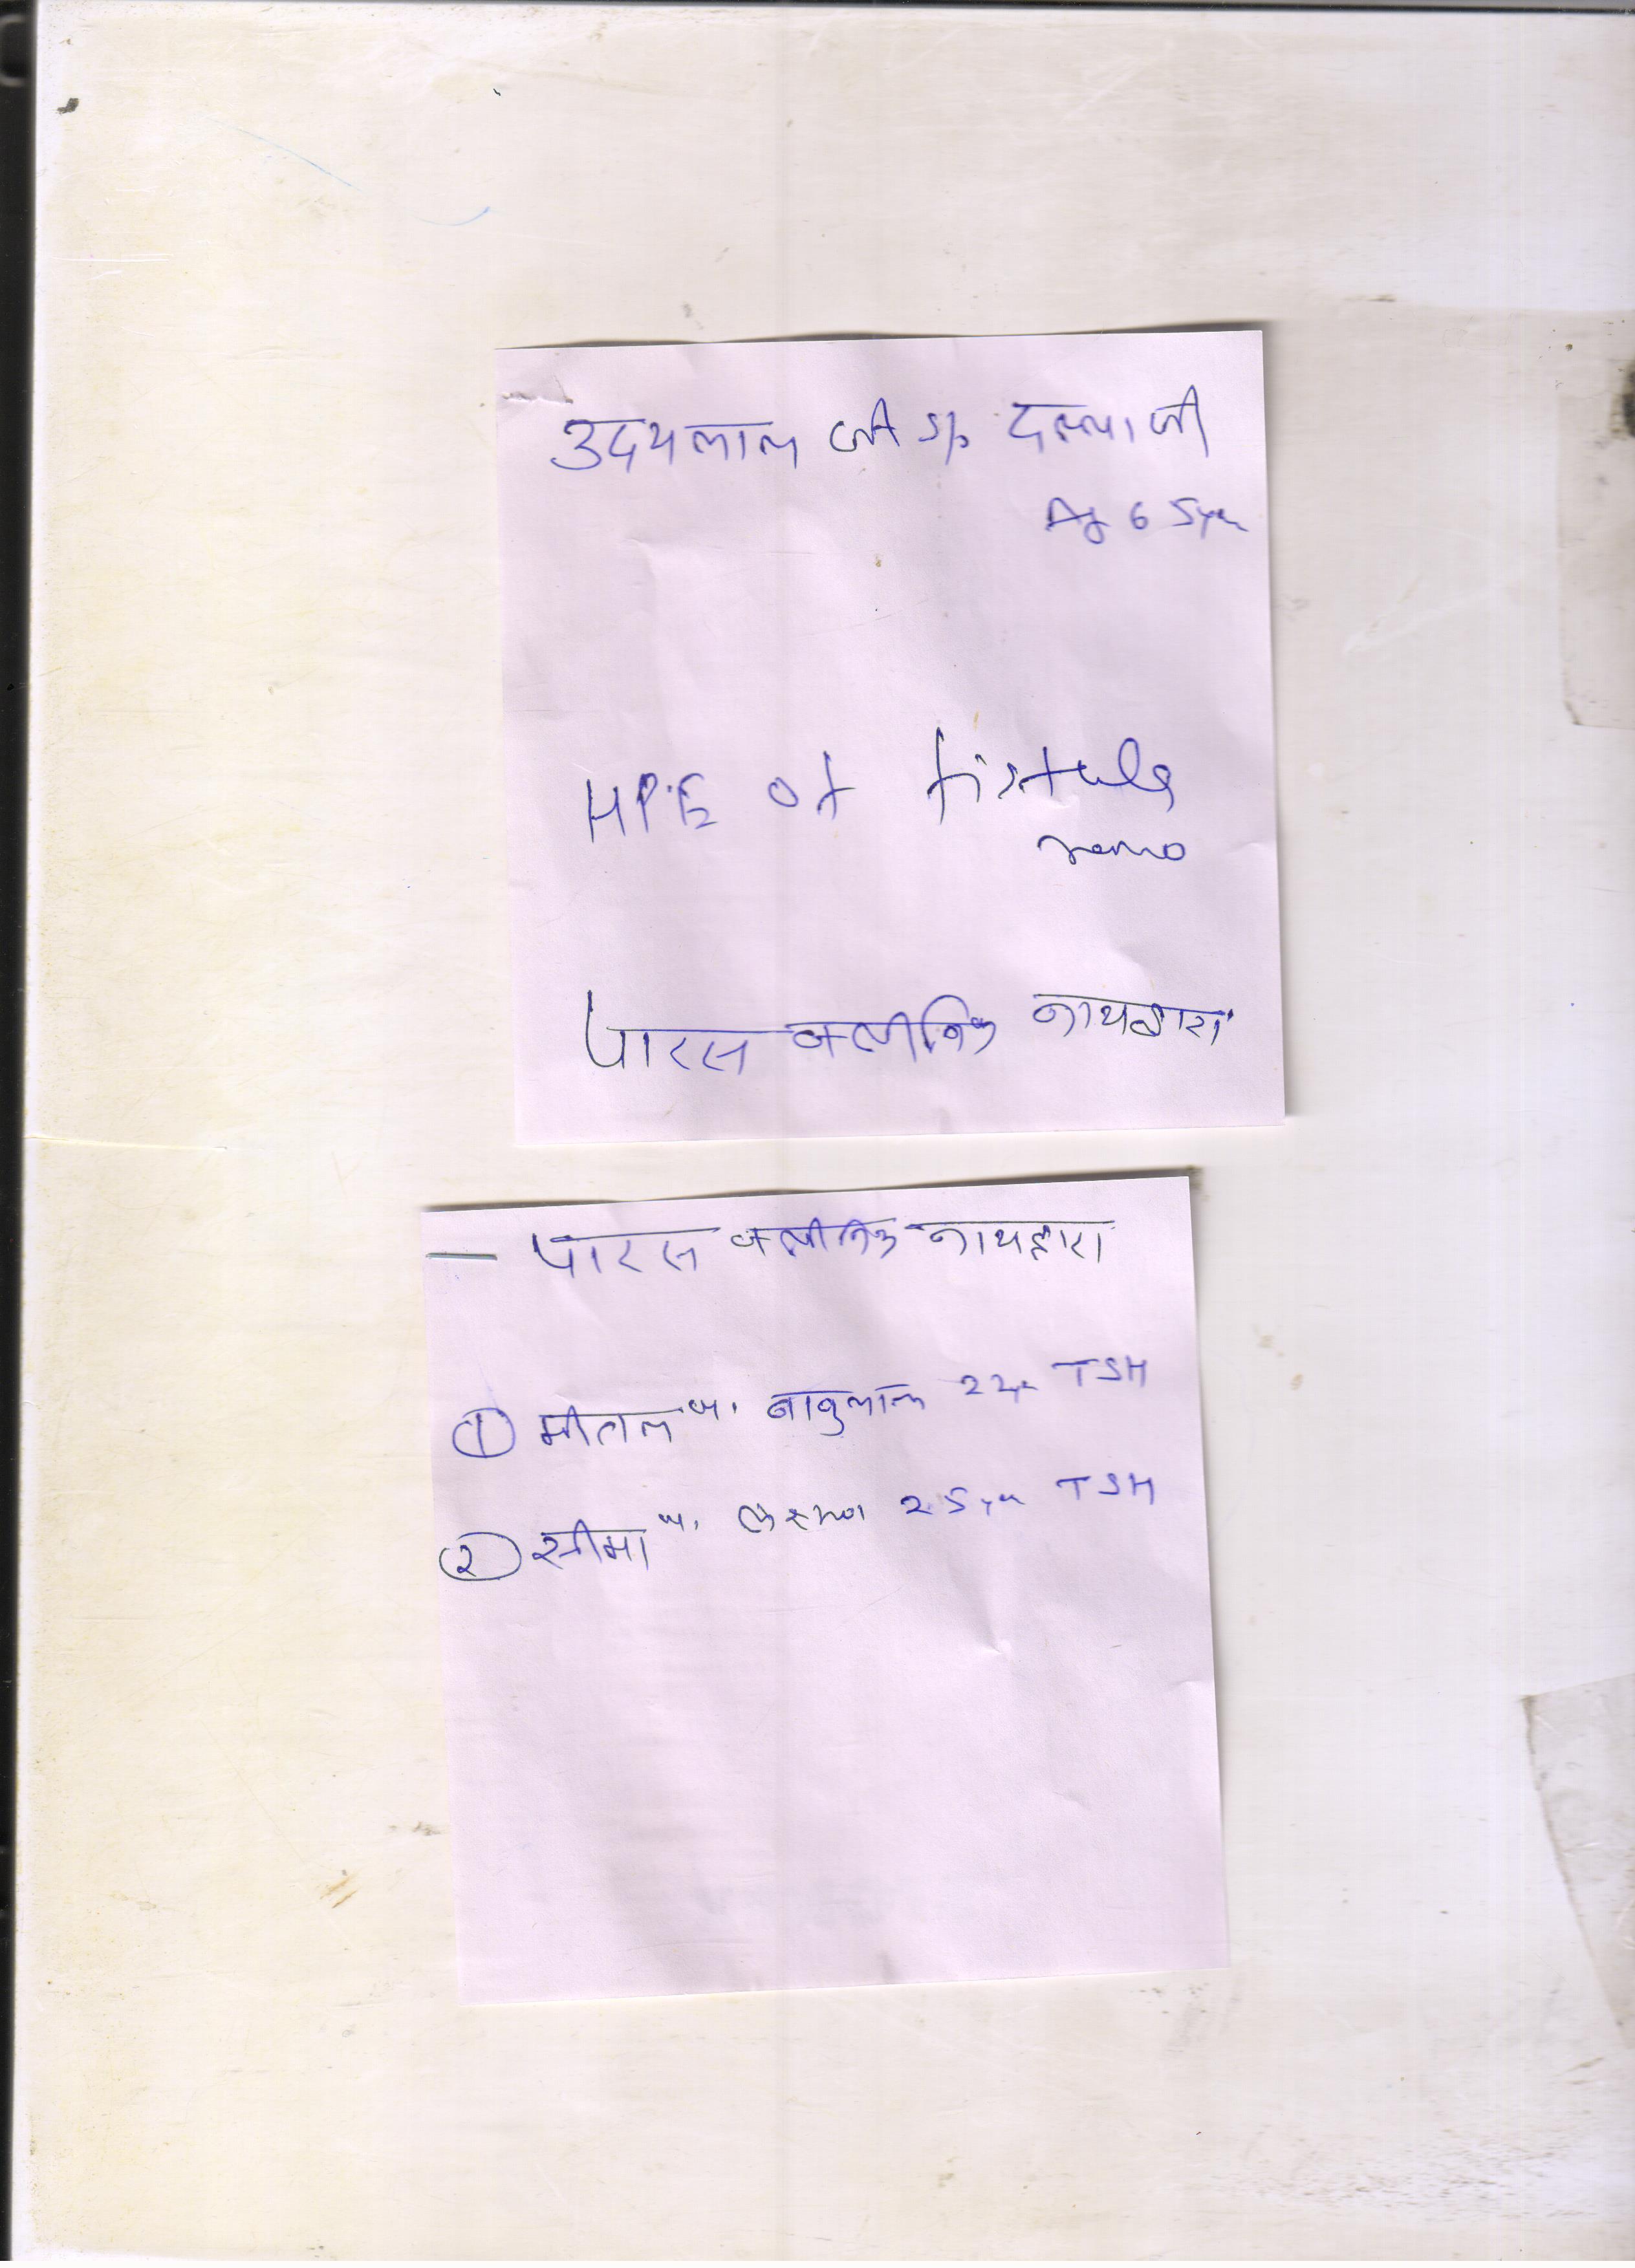 उदयलाल जी S/o दल्ला जी
Ag 65yr
HPE of fistula
पारस क्लीनिक नाथद्वारा
— पारस क्लीनिक नाथद्वारा
① शीतल w. बाबुलाल 22yr TSH
② सीमा w. लक्ष्मण 25yr TSH